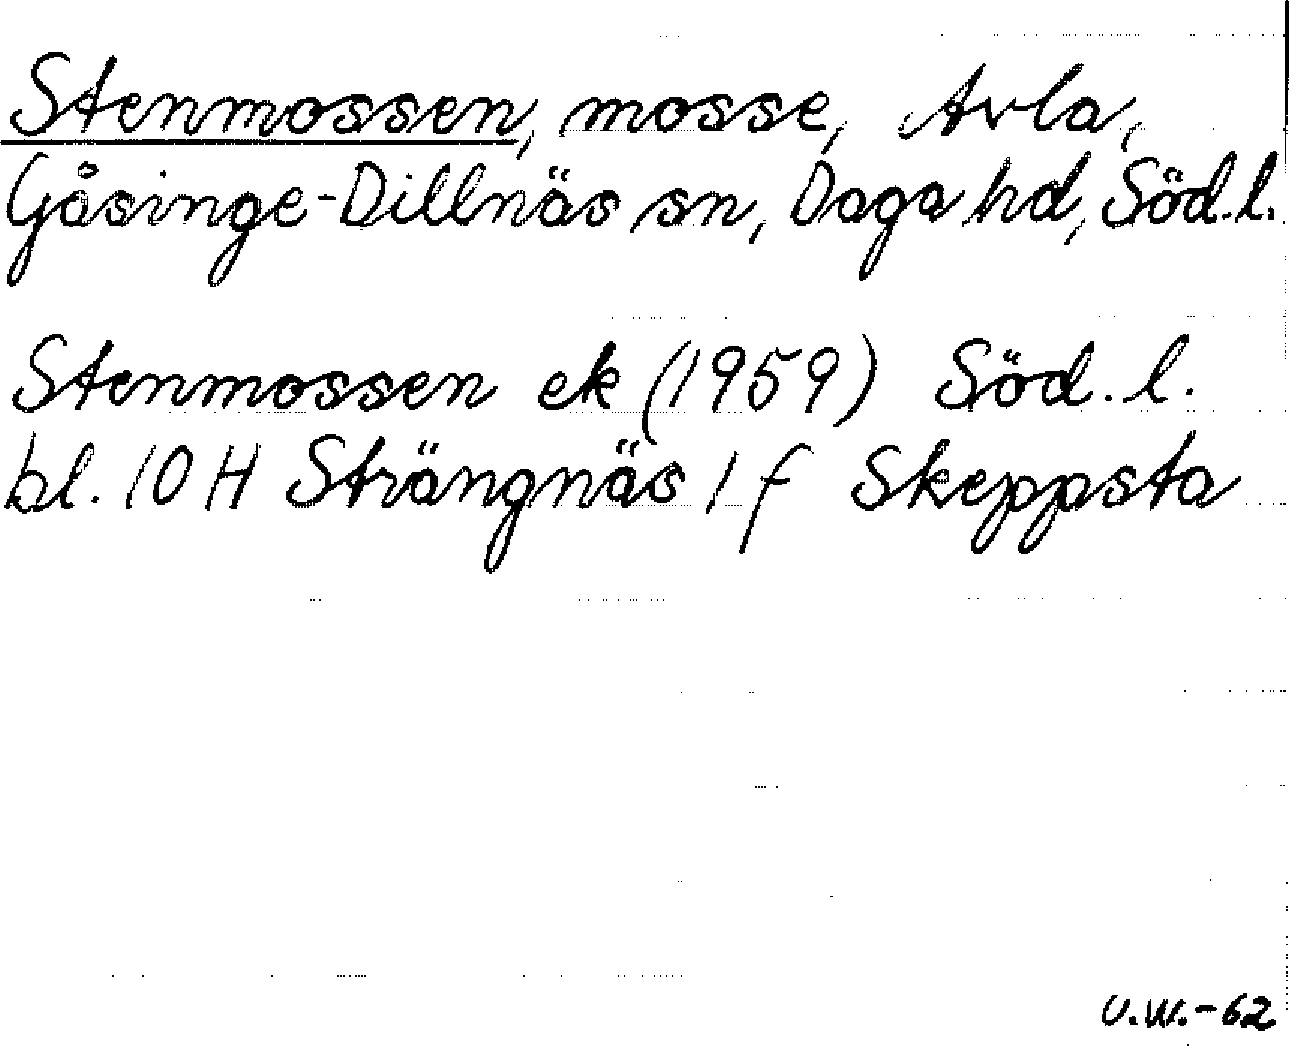 Stenmossen, mosse, Avla,
Gåsinge-Dillnäs sn, Daga hd, Söd.l.
Stenmossen ek (1959) Söd.l.
bl. 10 H Strängnäs 1 f Skeppsta
U.W.-62